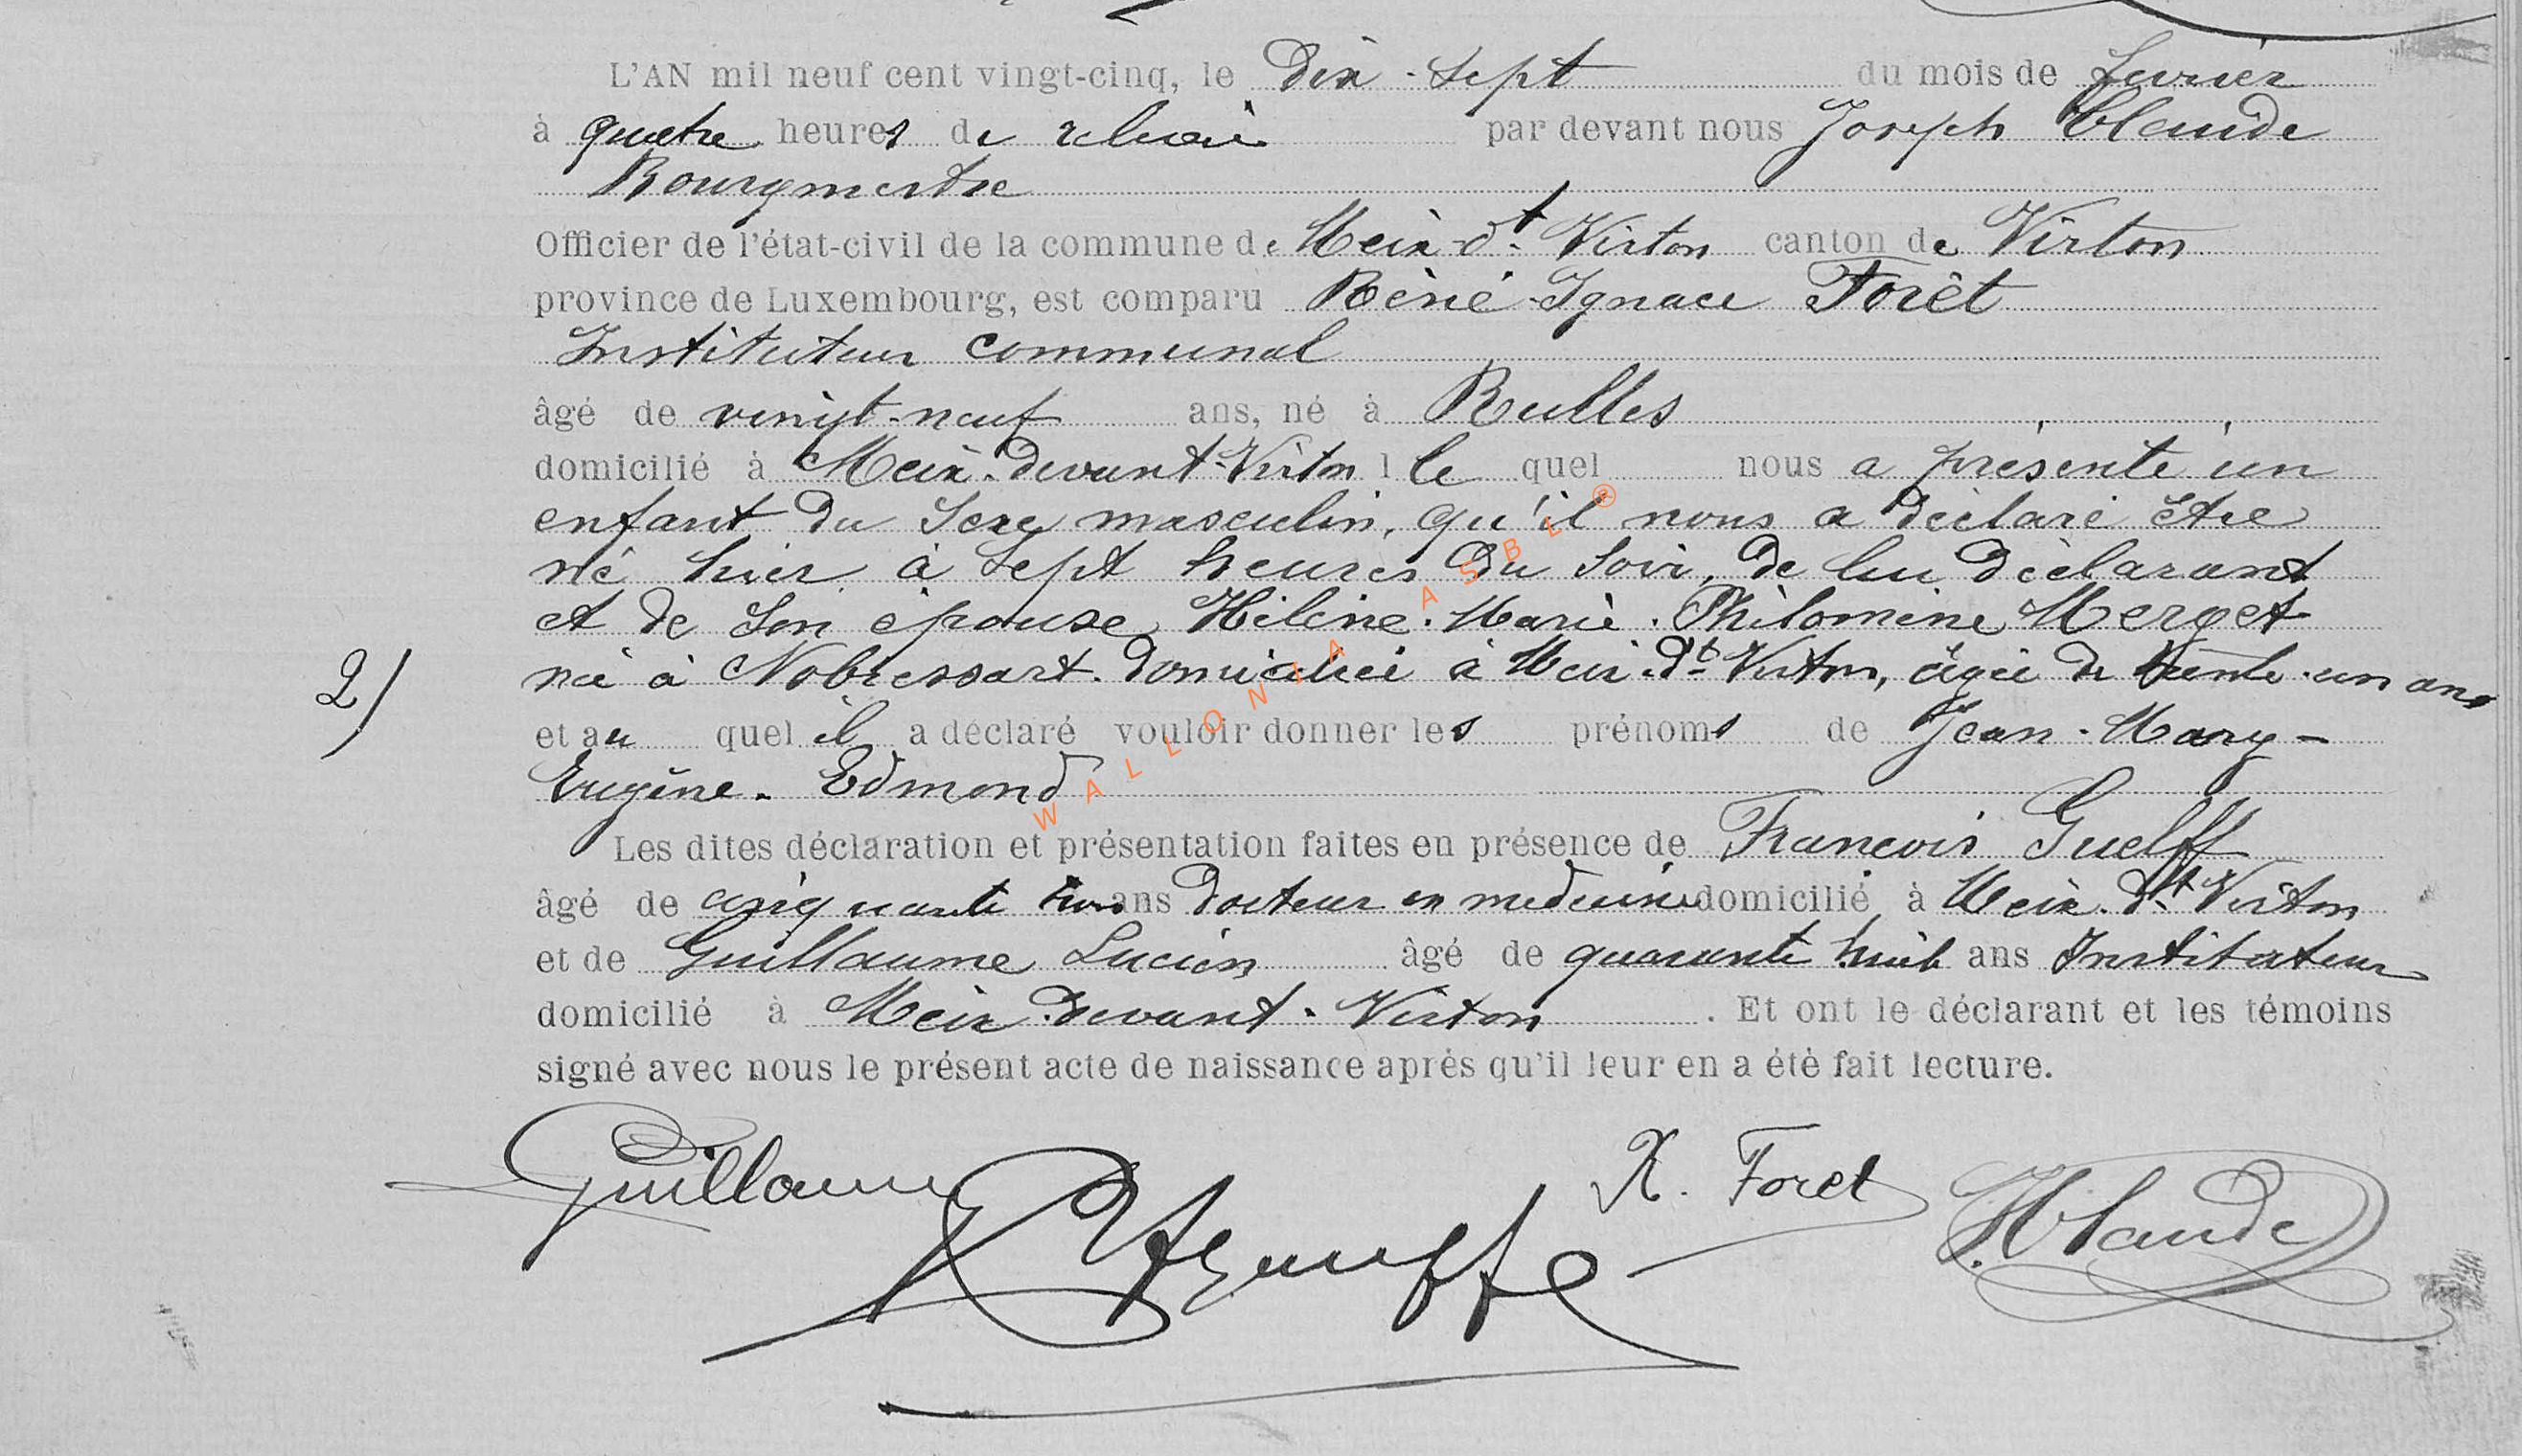 L'AN mil neuf cent vingt-cinq, le Dix-sept du mois de février
à quatre heures de relevée par devant nous Joseph Claude
Bourgmestre
Officier de l'état-civil de la commune de Meix-dt-Virton canton de Virton
province de Luxembourg, est comparu Réné-Ignace Forêt
Instituteur communal
âgé de vingt-neuf ans, né à Rulles
domicilié à Meix-devant-Virton lequel nous a présenté un
enfant du sexe masculin, qu'il nous a déclaré être
né hier à sept heures du soir, de lui déclarant
et de son épouse Hélène-Marie-Philomène Merget
née à Nobressart domiciliée à Meix-dt-Virton, âgée de trente-un ans
2/
et au quel il a déclaré vouloir donner les prénoms de Jean-Mary-
Eugène-Edmond
Les dites déclaration et présentation faites en présence de François Guelff
âgé de cinquante trois ans Docteur en médecine domicilié à Meix-dt-Virton
et de Guillaume Lucien âgé de quarante huit ans Instituteur
domicilié à Meix-devant-Virton. Et ont le déclarant et les témoins
signé avec nous le présent acte de naissance après qu'il leur en a été fait lecture.
Guillaume R. Foret J. Claude
WALLONIA ASBL ®